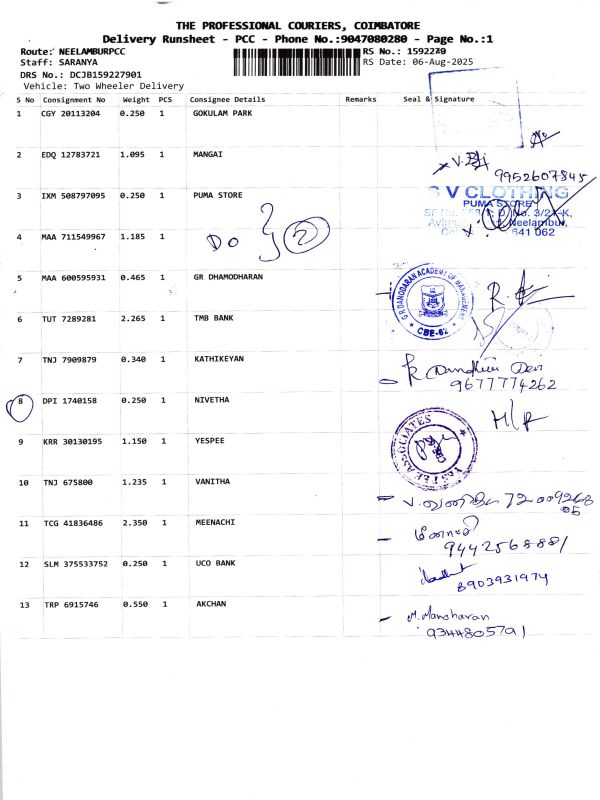 THE PROFESSIONAL COURIERS, COIMBATORE
Delivery Runsheet - PCC - Phone No.:9047080280 - Page No.:1
Route: NEELAMBURPCC RS No.: 1592279
Staff: SARANYA RS Date: 06-Aug-2025
DRS No.: DCJB159227901
Vehicle: Two Wheeler Delivery
S No Consignment No Weight PCS Consignee Details Remarks Seal & Signature
1 CGY 20113204 0.250 1 GOKULAM PARK
2 EDQ 12783721 1.095 1 MANGAI
9952607845
3 IXM 508797095 0.250 1 PUMA STORE
S V CLOTHING
PUMA STORE
Neelambur,
641 062
4 MAA 711549967 1.185 1 DO 2
5 MAA 600595931 0.465 1 GR DHAMODHARAN
G.R DAMODARAN ACADEMY OF MANAGEMENT
CBE-62
6 TUT 7289281 2.265 1 TMB BANK
7 TNJ 7909879 0.340 1 KATHIKEYAN
Devi
9677774262
8 DPI 1740158 0.250 1 NIVETHA
H/R
9 KRR 30130195 1.150 1 YESPEE
ASSOCIATES
10 TNJ 675800 1.235 1 VANITHA
11 TCG 41836486 2.350 1 MEENACHI
9442568881
12 SLM 375533752 0.250 1 UCO BANK
8903931974
13 TRP 6915746 0.550 1 AKCHAN
M. Manoharan
9344805791